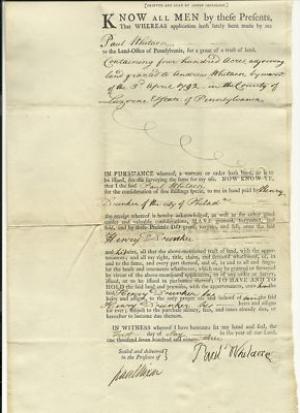 KNOW ALL MEN by these Presents,
That WHEREAS application hath lately been made by me
Paul Whitacre
to the Land-Office of Pennsylvania, for a grant of a tract of land.
Containing four hundred Acres adjoining
land granted to Andrew Whitacre by warrt
of the 3d April 1792 in the County of
Luzerne & State of Pennsylvania
IN PURSUANCE whereof, a warrant or order hath been, or is to
be issued, for the surveying the same for my use. NOW KNOW YE,
that I the said Paul Whitacre for
the consideration of five shillings specie, to me in hand paid by Henry
Drinker of the city of Philada
the receipt whereof is hereby acknowledged, as well as for other good
and valuable considerations, HAVE granted, bargained
and sold, and by these Presents DO grant, bargain, and sell, unto the said
Henry Drinker
his heirs, all that the above-mentioned tract of land, with the appur-
tenances; and all my right, title, claim, and demand whatsoever, of, in
and to the same, and every part thereof, and of, in and to all and singu-
lar the lands and tenements whatsoever, which may be granted or surveyed
by virtue of the above-mentioned application, to
issued, or to be issued in pursuance thereof; TO HAVE AND TO
HOLD the said land and premises, with the appurtenances, unto
Henry Drinker his
heirs and assigns, to the only proper use and behoof of the said
Henry Drinker his heirs and assigns
for ever; subject to the purchase money, fees, and taxes already due, or
hereafter to become due thereon.
IN WITNESS whereof I have hereunto set my hand and seal, the
first day of May in the year of our Lord,
one thousand seven hundred and ninety
Sealed and delivered
in the Presence of
Paul Whitacre